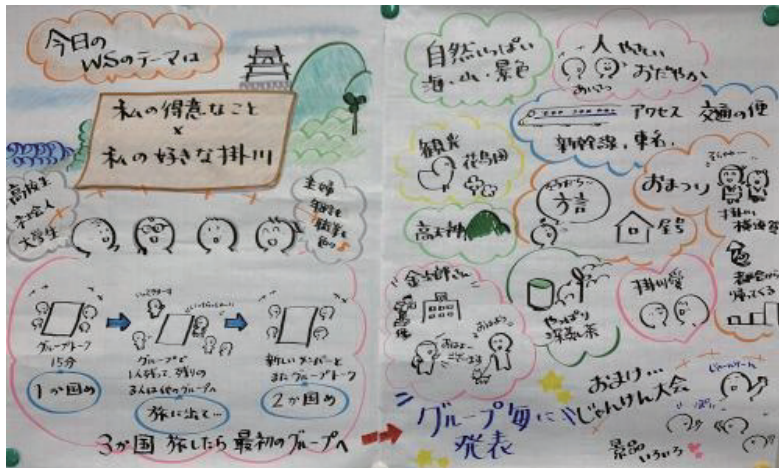 今日の
WSのテーマは
私の得意なこと
×
私の好きな掛川
高校生
社会人
大学生
主婦
グループトーク
15分
1か国め
グループで
1人残って、残りの
3人は他のグループへ
旅に出て…
新しいメンバーと
またグループトーク
2か国め
3か国 旅したら 最初のグループへ
自然いっぱい
海・山・景色
人 やさしい
おだやか
あいさつ
アクセス 交通の便
新幹線、東名、
観光
花鳥園
方言
屋号
おまつり
高天神
掛川
都会から
帰ってくる
掛川愛
やっぱり
深蒸し茶
おはよー
ございます
おはよう
グループ毎に
発表
おまけ…
じゃんけん大会
じゃんけーん
景品
いろいろ